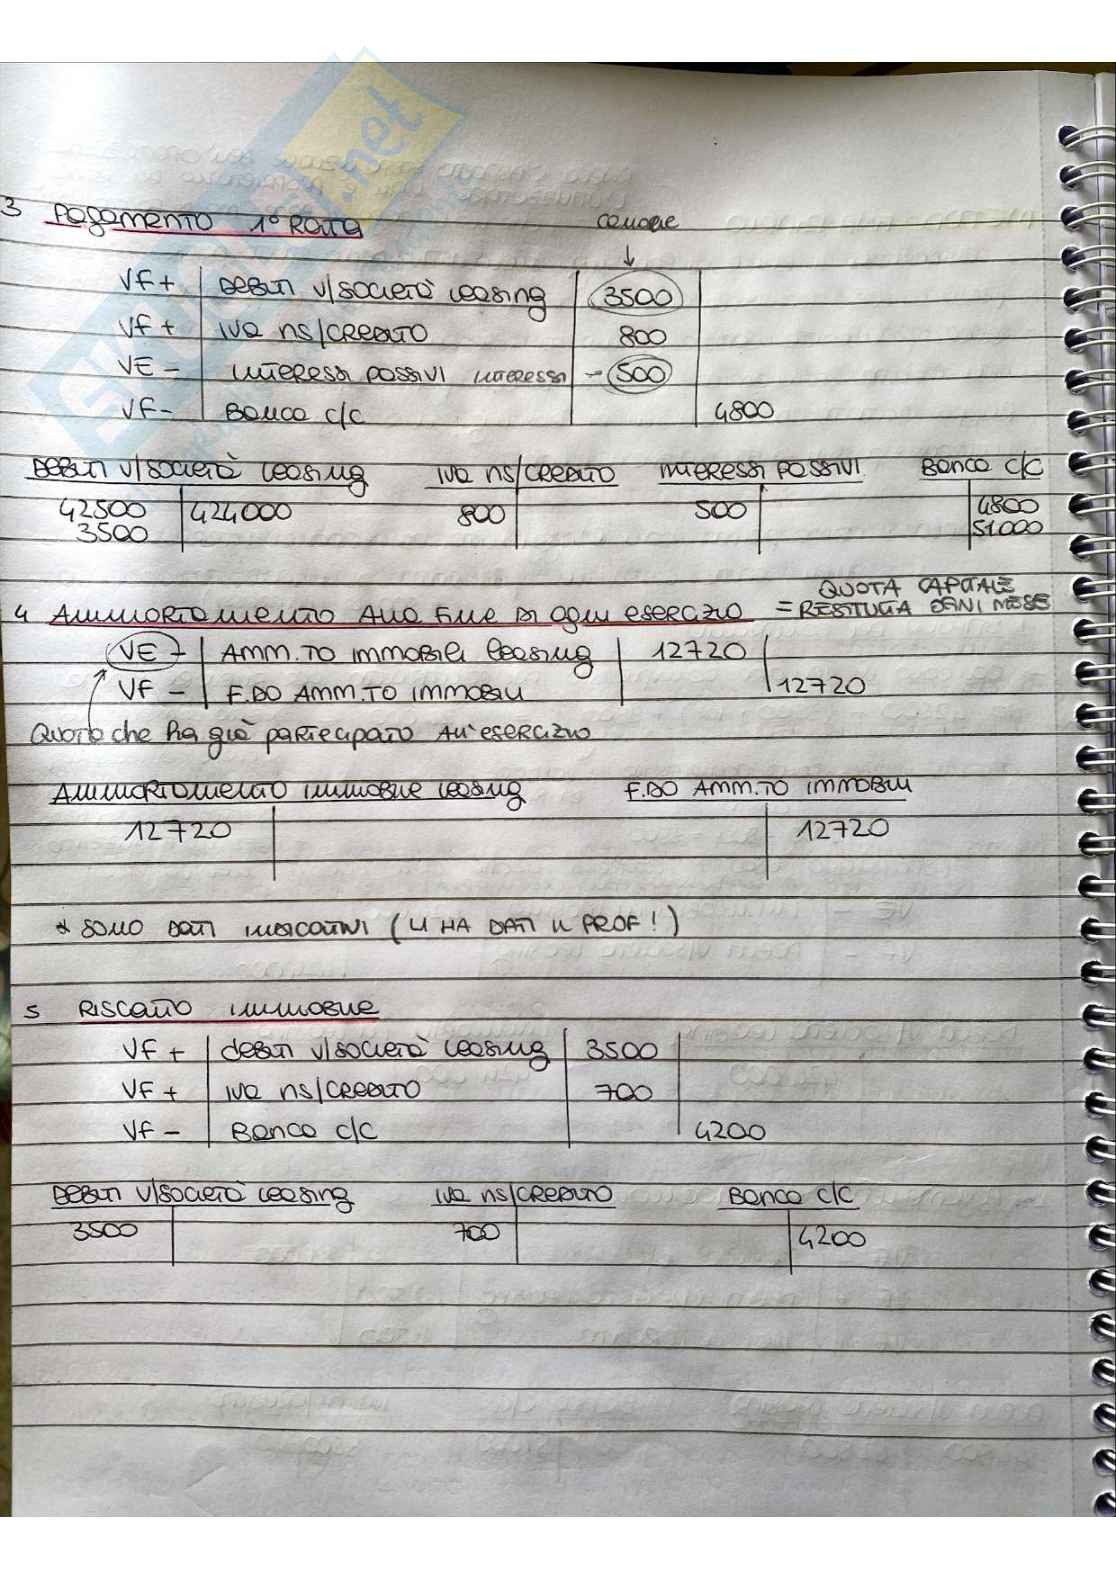 3 Pagamento 1° Rata
canone
↓
VF+ Debiti v/società leasing 3500
VF+ IVA ns/credito 800
VE- Interessi passivi interessi - 500
VF- Banca c/c 4800
Debiti v/società leasing IVA ns/credito Interessi passivi Banca c/c
42500 424000 800 500 4800
3500 51.000
QUOTA CAPITALE
4 Ammortamento alla fine di ogni esercizio = RESTITUITA OGNI MESE
VE - AMM.TO immobili leasing 12720
VF - F.DO AMM.TO immobili 12720
Quota che ha già partecipato all'esercizio
Ammortamento immobile leasing F.DO AMM.TO immobili
12720 12720
* SONO DATI INDICATIVI (LI HA DATI IL PROF!)
5 RISCATTO immobile
VF + debiti v/società leasing 3500
VF + IVA ns/credito 700
VF - Banca c/c 4200
Debiti v/società leasing IVA ns/credito Banca c/c
3500 700 4200